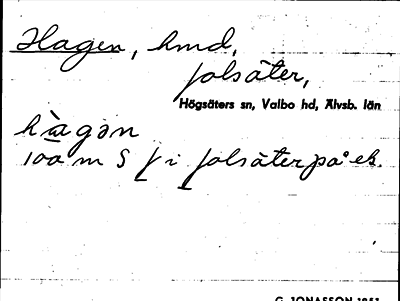 Hagen, hmd,
Jolsäter,
Högsäters sn, Valbo hd, Älvsb. län
hàgən
100 m S f i Jolsäter på ek.
G. JONASSON 1951